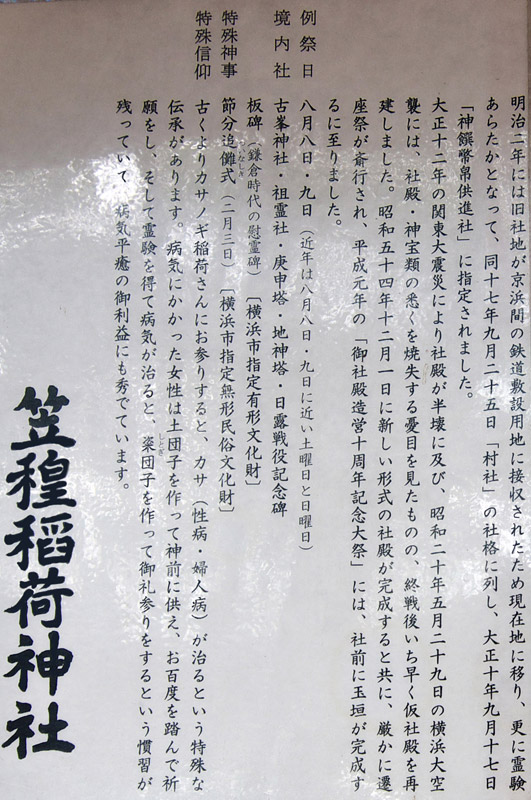 明治二年には旧社地が京浜間の鉄道敷設用地に接収されたため現在地に移り、更に霊験
あらたかとなって、同十七年九月二十五日「村社」の社格に列し、大正十年九月十七日
「神饌幣帛供進社」に指定されました。
大正十二年の関東大震災により社殿が半壊に及び、昭和二十年五月二十九日の横浜大空
襲には、社殿・神宝類の悉くを焼失する憂目を見たものの、終戦後いち早く仮社殿を再
建しました。昭和五十四年十二月一日に新しい形式の社殿が完成すると共に、厳かに遷
座祭が斎行され、平成元年の「御社殿造営十周年記念大祭」には、社前に玉垣が完成す
るに至りました。
例祭日 八月八日・九日（近年は八月八日・九日に近い土曜日と日曜日）
境内社 古峯神社・祖霊社・庚申塔・地神塔・日露戦役記念碑
板碑（鎌倉時代の慰霊碑）〔横浜市指定有形文化財〕
特殊神事 節分追儺式（二月三日）〔横浜市指定無形民俗文化財〕
特殊信仰 古くよりカサノギ稲荷さんにお参りすると、カサ（性病・婦人病）が治るという特殊な
伝承があります。病気にかかった女性は土団子を作って神前に供え、お百度を踏んで祈
願をし、そして霊験を得て病気が治ると、粢団子を作って御礼参りをするという慣習が
残っていて、病気平癒の御利益にも秀でています。
笠䅣稲荷神社